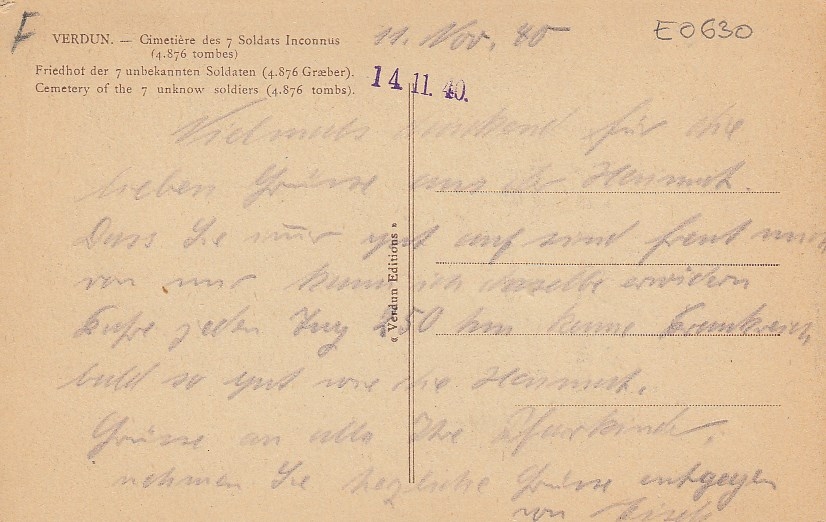 F
VERDUN. — Cimetière des 7 Soldats Inconnus
(4.876 tombes)
Friedhof der 7 unbekannten Soldaten (4.876 Græber).
Cemetery of the 7 unknow soldiers (4.876 tombs).
11. Nov. 40
E0630
14.11.40.
« Verdun Editions »
Vielmals dankend für die
lieben Grüsse aus der Heimat.
Dass Sie immer gut auf sind freut mich
von mir kann ich dasselbe erwidern
Fahre jeden Tag 250 km kenne Frankreich
bald so gut wie die Heimat.
Grüsse an alle Ihre
nehmen Sie herzliche Grüsse entgegen
von